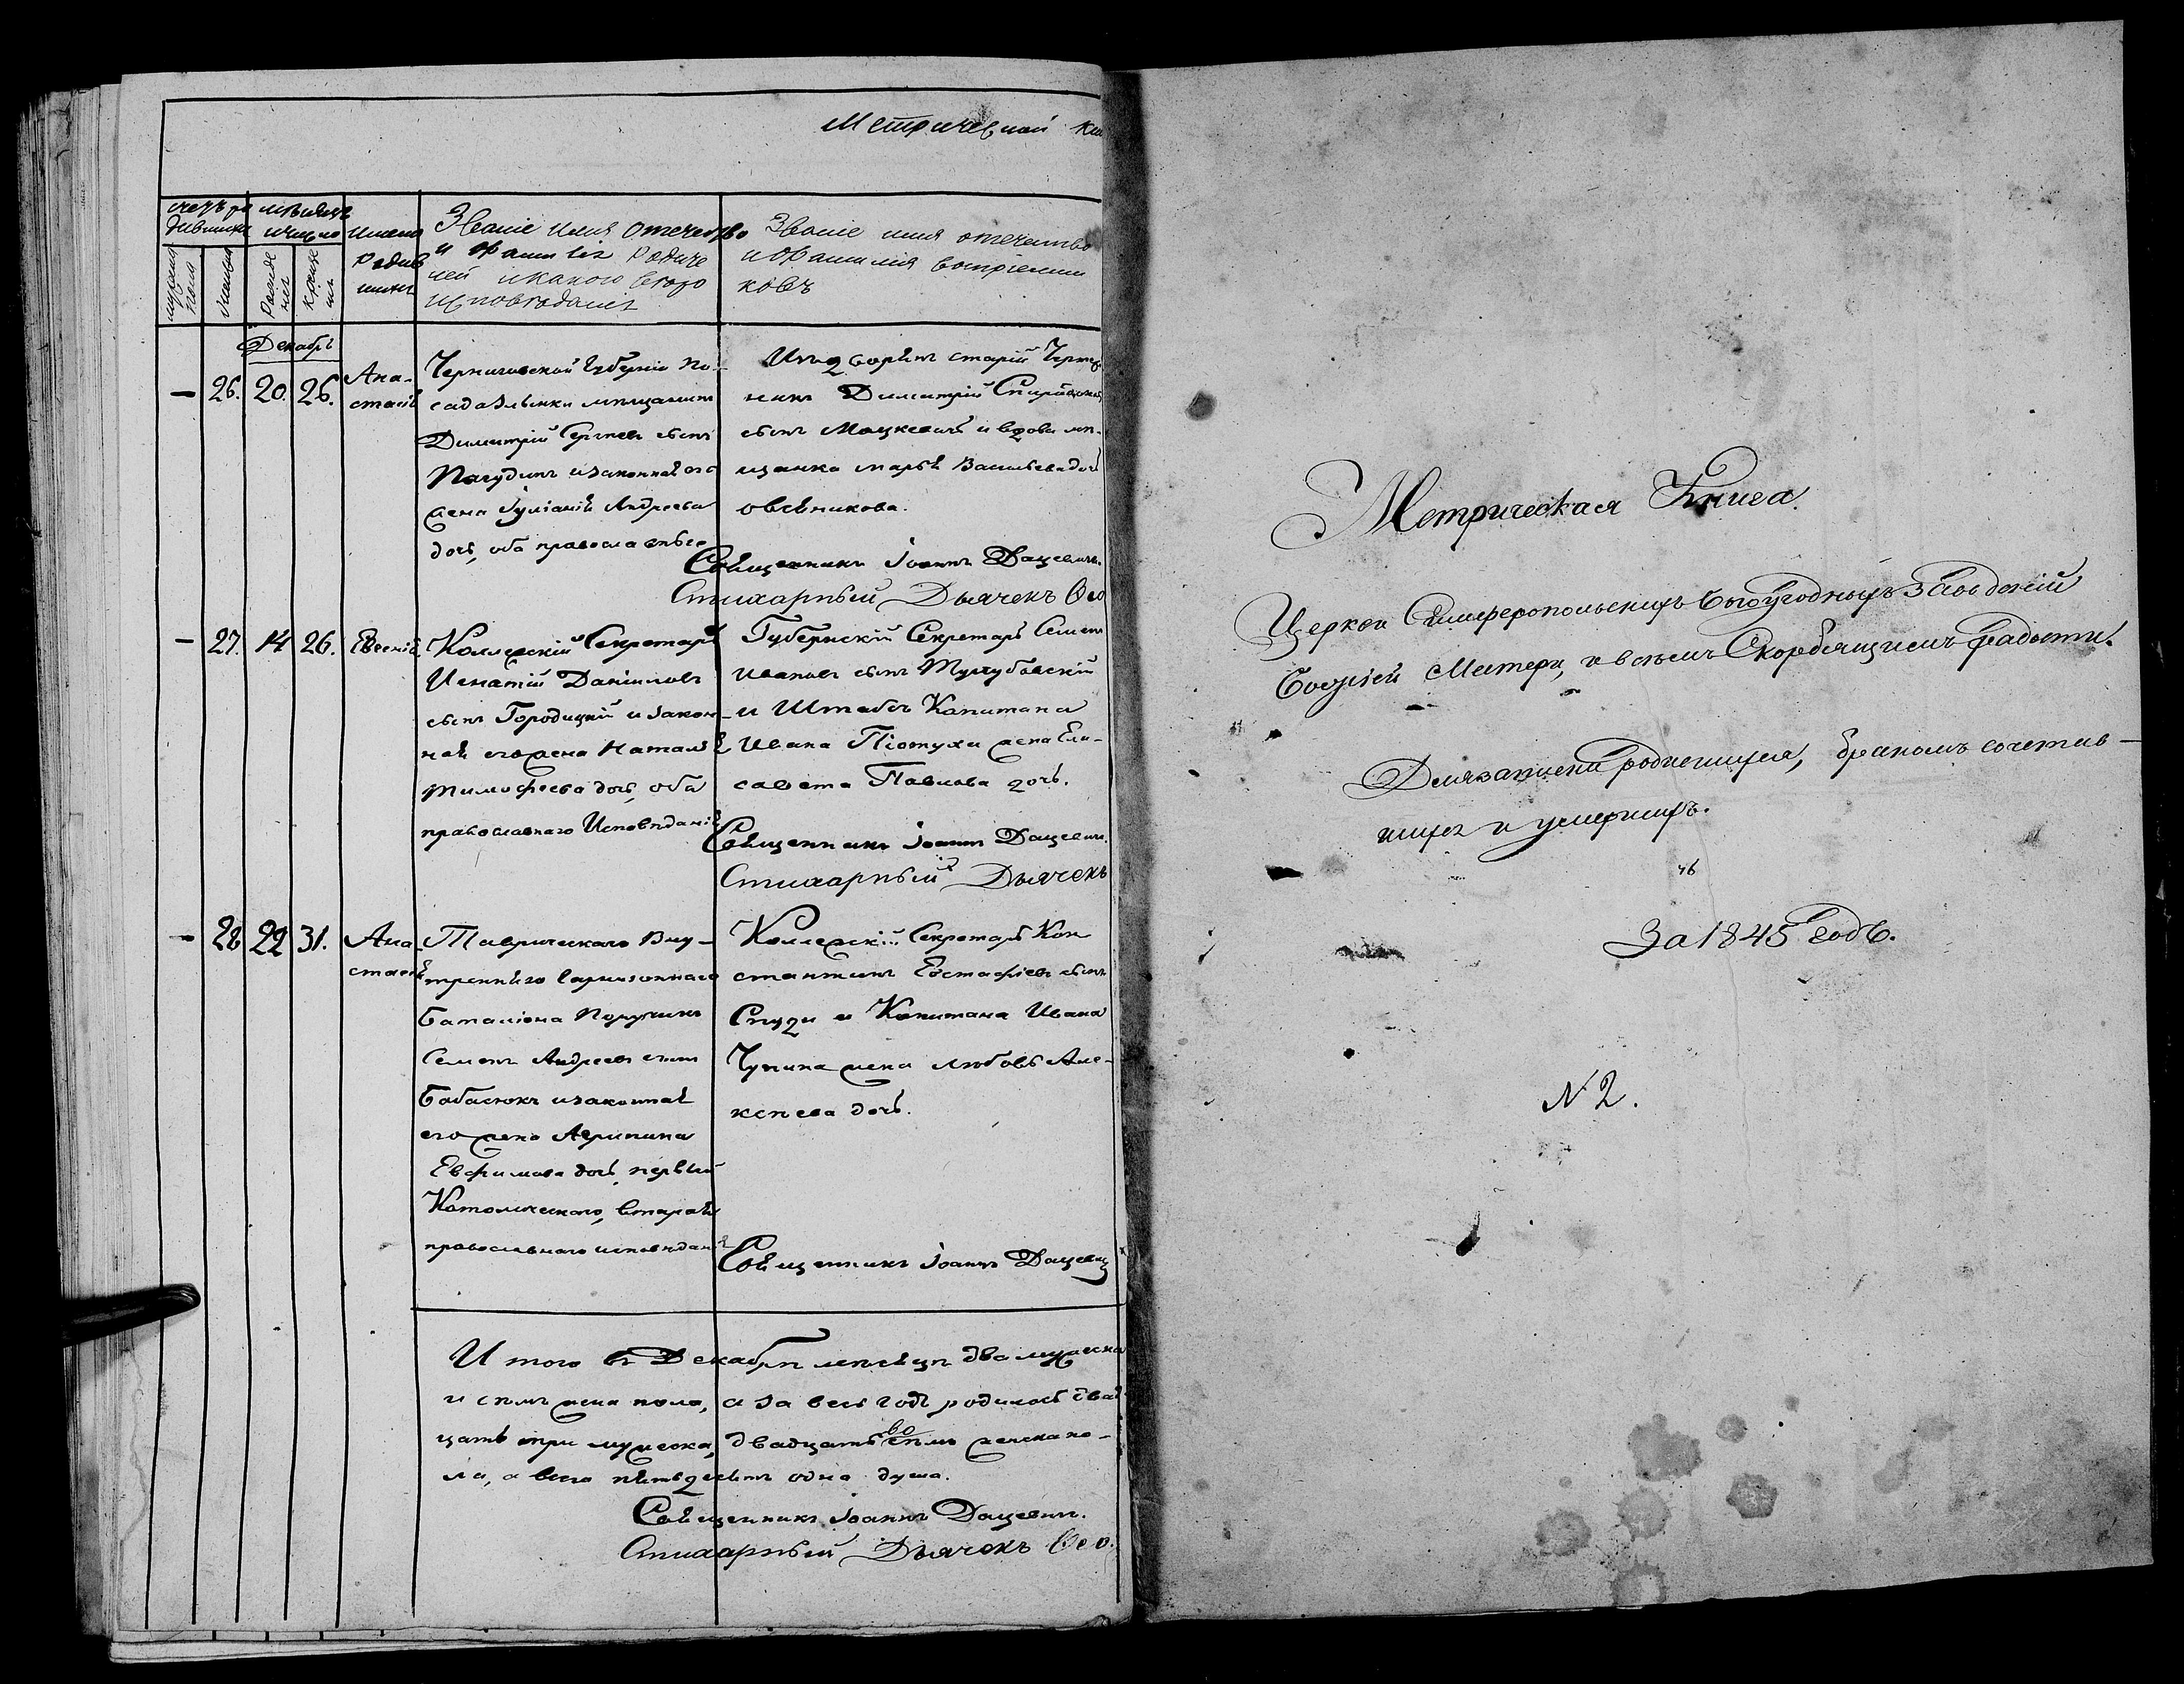 Метрической кн
счетъ ро
дившихс
мѣсяцъ
и число
имена
родив
шихс
Званіе имя отечество
и фамилія родите
лей и какого вѣро
исповѣданія
Званіе имя отечество
и фамилія воспріемни
ковъ
мужеска
пола
женска
рожде
нія
креще
нія
Декабрь
— 26. 20. 26.
Ана-
стасія
Черниговской Губерніи по-
сада Злынки мещанинъ
Димитрій Сергѣевъ сынъ
Пагудинъ и законная его
жена Іуліанія Андреева
дочь, оба православнаго
Изъ дворянъ старій Чертеж
никъ Димитрій Спиридоновъ
сынъ Мацкевичъ и вдова мѣ-
щанка Марья Васильева дочь
Овсяникова.
Священникъ Іоаннъ Дацевичъ.
Стихарный Дьячекъ Ѳео
— 27. 14 26. Евгенія
Коллежскій Секретарь
Игнатій Даніиловъ
сынъ Городицкій и закон-
ная его жена Наталія
Тимофеева дочь, оба
православнаго Исповѣданія
Губернскій Секретарь Семенъ
Ивановъ сынъ
и Штабсъ Капитана
Ивана Пѣтуха жена Ели-
савета Павлова дочь.
Священникъ Іоаннъ Дацевичъ.
Стихарный Дьячекъ
— 28 22 31. Ана-
стасія
Таврическаго Вну-
тренняго Гарнизоннаго
Баталіона Поручикъ
Семенъ Андреевъ сынъ
Бабасюкъ и законная
его жена Агрипина
Евфимова дочь, первый
Католическаго, вторая
православнаго исповѣданія
Коллежскій Секретарь Кон
стантинъ Евстафіевъ сынъ
Спуди и Капитана Ивана
Чупина жена Любовь Але-
ксѣева дочь.
Священникъ Іоаннъ Дацевичъ
Итого въ Декабрѣ мѣсяцѣ два мужеска
и семь жена пола, а за весь годъ родилось двад
цать три мужеска, двадцать во семь женска по-
ла, а всего пятьдесятъ одна душа.
Священникъ Іоаннъ Дацевичъ.
Стихарный Дьячекъ Ѳео
Метрическая Книга.
Церкви Симферопольскихъ Богоугодныхъ Заведеній
Божіей Матери, и всѣмъ Скорбящимъ Радости.
Для записки родившихся, бракомъ сочетав-
шихся и умершихъ.
46
За 1845 годъ.
N 2.